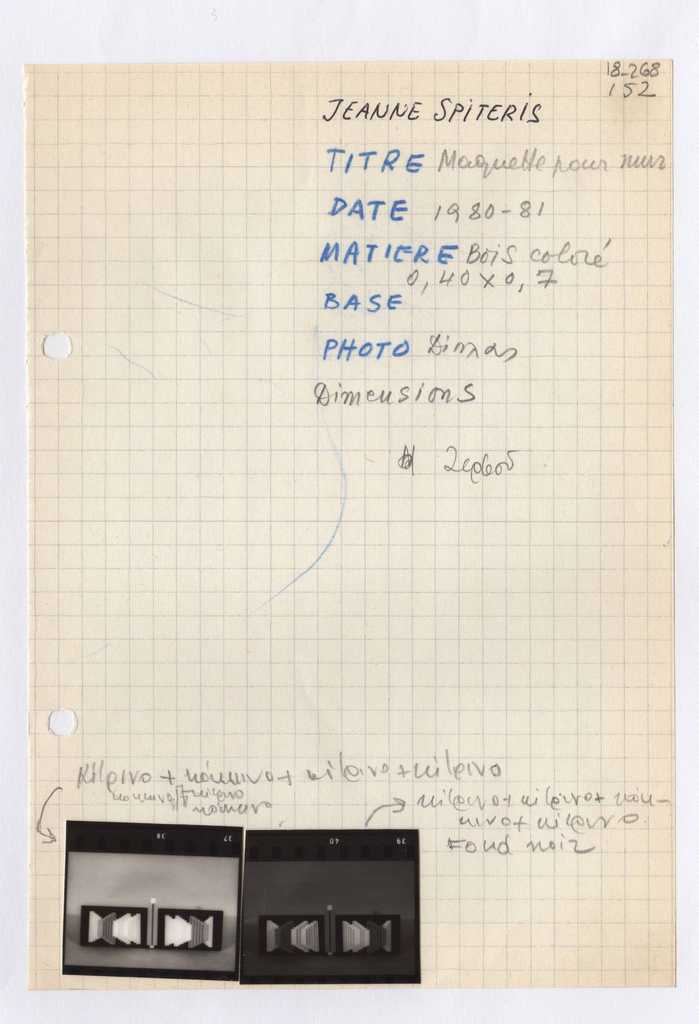 18-268
152
JEANNE SPITERIS
TITRE Maquette pour mur
DATE 1980-81
MATIERE Bois coloré
0,40 x 0,7
BASE
PHOTO Dimas
Dimensions
κίτρινο + κόκκινο + κίτρινο + κίτρινο
κόκκινο + κίτρινο
κόκκινο
κίτρινο + κίτρινο + κόκ-
κινο + κίτρινο.
Fond noir
38 37
40 39